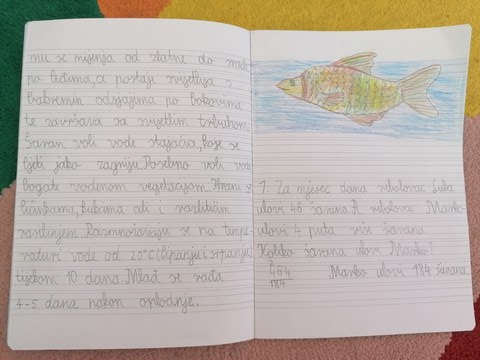 mu se mijenja od zlatne do smeđe
po leđima, a postaje svjetlija s
bakrenim odsjajima po bokovima
te završava sa svijetlim trbuhom.
Šaran voli vode stajaćice, koje se
ljeti jako zagriju. Posebno voli vode
bogate vodenom vegetacijom. Hrani se
ličinkama, bubama ali i različitim
raslinjem. Razmnožavaju se na tempe-
raturi vode od 20°C (lipanj i srpanj)
tijekom 10 dana. Mlađ se rađa
4-5 dana nakon oplodnje.
1. Za mjesec dana ribolovac Luka
ulovi 46 šarana. A ribolovac Marko
ulovi 4 puta više šarana.
Koliko šarana ulovi Marko?
Marko ulovi 184 šarana.
184